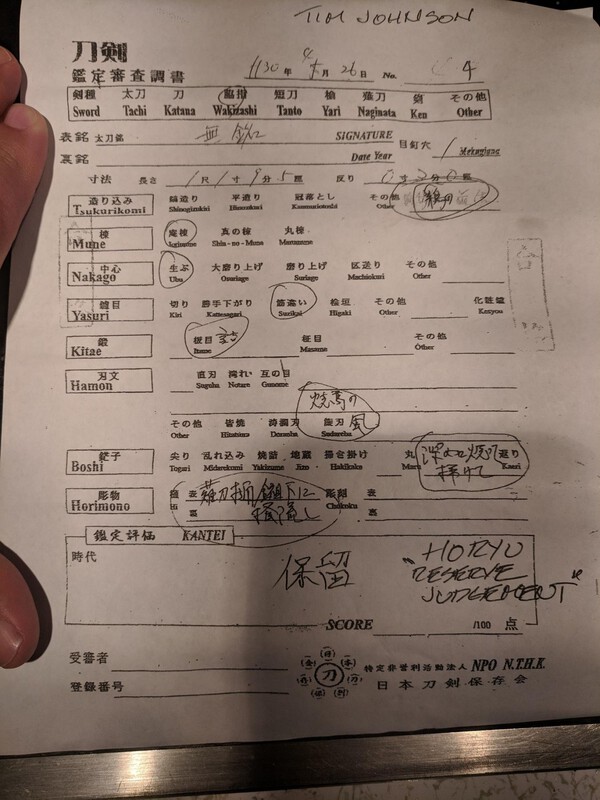 TIM JOHNSON
刀剣
鑑定審査調書 年 月 26 日 No. 4
剣種 太刀 刀 脇指 短刀 槍 薙刀 剣 その他
Sword Tachi Katana Wakizashi Tanto Yari Naginata Ken Other
表銘 太刀銘 無銘 SIGNATURE 目釘穴 1 Mekugiana
裏銘 Date Year
寸法 長さ 1尺 1寸 9分 5厘 反り 0寸 分 0厘
造り込み 鎬造り 平造り 冠落とし その他
Tsukurikomi Shinogizukiri Hirazukuri Kanmuriotoshi Other
棟 庵棟 真の棟 丸棟
Mune Iorimune Shin-no-Mune Marumune
中心 生ぶ 大磨り上げ 磨り上げ 区送り その他
Nakago Ubu Osuriage Suriage Machiokuri Other
鑢目 切り 勝手下がり 筋違い 桧垣 その他 化粧鑢
Yasuri Kiri Kattesagari Surikai Higaki Other Kesyou
鍛 板目 柾目 その他
Kitae Itame Masame Other
刃文 直刃 湾れ 互の目
Hamon Suguha Notare Gunome
焼高の
その他 皆焼 涛瀾刃 簾刃 風
Other Hitatsura Toransha Sudareba
鋩子 尖り 乱れ込み 焼詰 地蔵 掃き掛け 丸 返り
Boshi Togari Midarekomi Yakizume Jizo Hakikake Maru Kaeri
掃けて
彫物 表 薙刀樋 下に 彫刻 表
Horimono 裏 掻流し Chokoku 裏
鑑定評価 KANTEI
時代 保留 "HORYU
RESERVE
JUDGEMENT"
SCORE /100 点
受審者 特定非営利活動法人 NPO N.T.H.K.
登録番号 刀 日本刀剣保存会